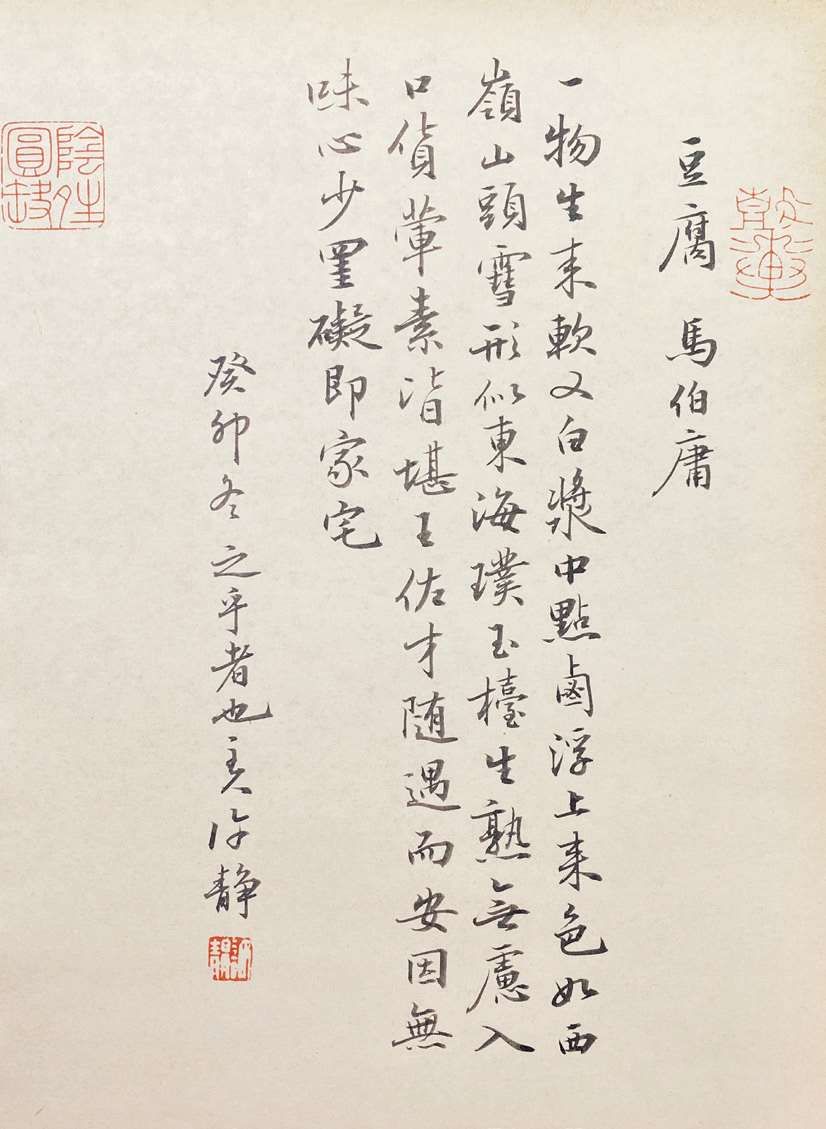 豆腐 馬伯庸
一物生来軟又白漿中點鹵浮上来色如西
嶺山頭雪形似東海璞玉檯生熟無慮入
口貨葷素皆堪王佐才随遇而安因無
味心少罣礙即家宅
癸卯冬之乎者也 许静
陰 圓缺